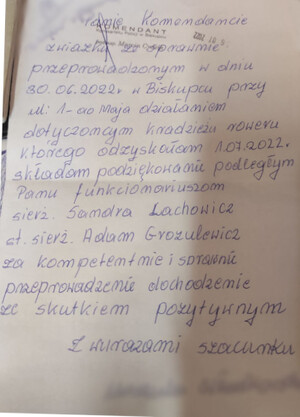 Panie Komendancie
KOMENDANT
związku ze sprawnie
przeprowadzonym w dniu
30.06.2022r w Biskupcu przy
ul: 1-go Maja działaniem
dotyczącym kradzieżu roweru
którego odzyskałam 1.07.2022r.
składam podziękowania podległym
Panu funkcjonariuszom
sierż. Sandra Lachowicz
st. sierż. Adam Grozulewicz
za kompetentnie i sprawnie
przeprowadzenie dochodzenie
ze skutkiem pozytywnym
Z wyrazami szacunku